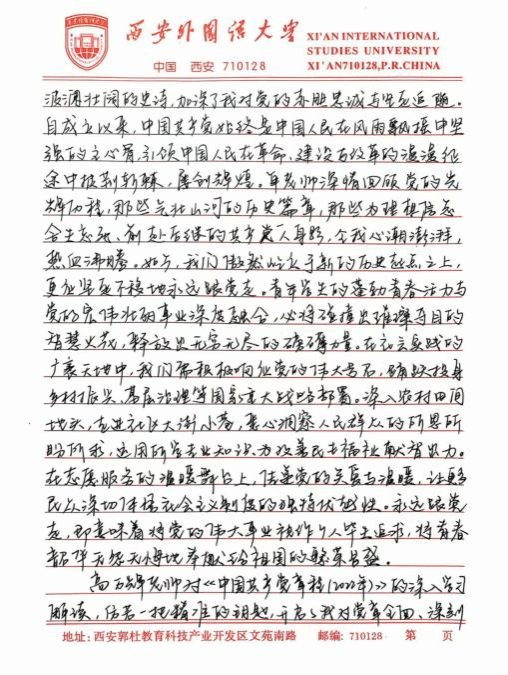 西安外国语大学
中国 西安 710128
XI'AN INTERNATIONAL
STUDIES UNIVERSITY
XI'AN710128,P.R.CHINA
波澜壮阔的史诗,加深了我对党的赤胆忠诚与坚定追随。
自成立以来,中国共产党始终是中国人民在风雨飘摇中坚
强的主心骨,引领中国人民在革命、建设与改革的漫漫征
途中披荆斩棘,屡创辉煌。每老师深情回顾党的光
辉历程,那些气壮山河的历史篇章,那些为理想信念
舍生忘死、前赴后继的共产党人身影,令我心潮澎湃,
热血沸腾。如今,我们傲然屹立于新的历史起点之上,
更应坚定不移地永远跟党走。青年学生的蓬勃青春活力与
党的宏伟壮丽事业深度融合,必将碰撞出璀璨夺目的
智慧火花,释放出无穷无尽的磅礴力量。在社会实践的
广袤天地中,我们需积极响应党的伟大号召,踊跃投身
乡村振兴、基层治理等国家重大战略部署。深入农村田间
地头,走进社区大街小巷,悉心洞察人民群众的所思所
盼所求,运用所学专业知识为改善民生福祉献智出力。
在志愿服务的温暖舞台上,传递党的关怀与温暖,让更多
民众深切体悟社会主义制度的独特优越性。永远跟党
走,即意味着将党的伟大事业视作个人毕生追求,将青春
韶华无怨无悔地奉献给祖国的繁荣昌盛。
高万辉老师对《中国共产党章程(2022年)》的深入学习
解读,仿若一把精准的钥匙,开启了我对党章全面、深刻
地址:西安郭杜教育科技产业开发区文苑南路 邮编:710128 第 页